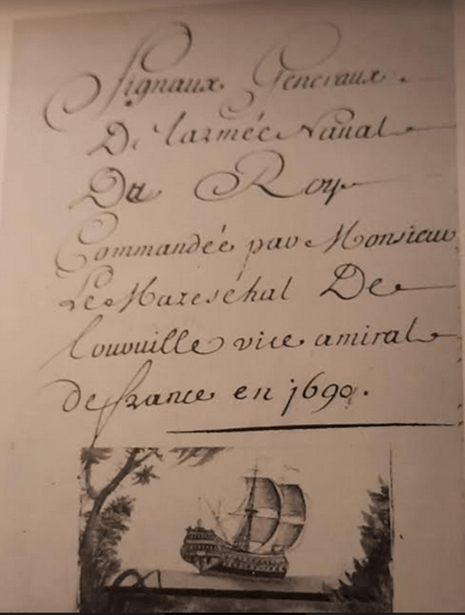 Signaux Generaux
De Larmée Naual
Du Roy
Commandée par Monsieur
Le Mareschal De
Tourville vice amiral
de france en 1690.